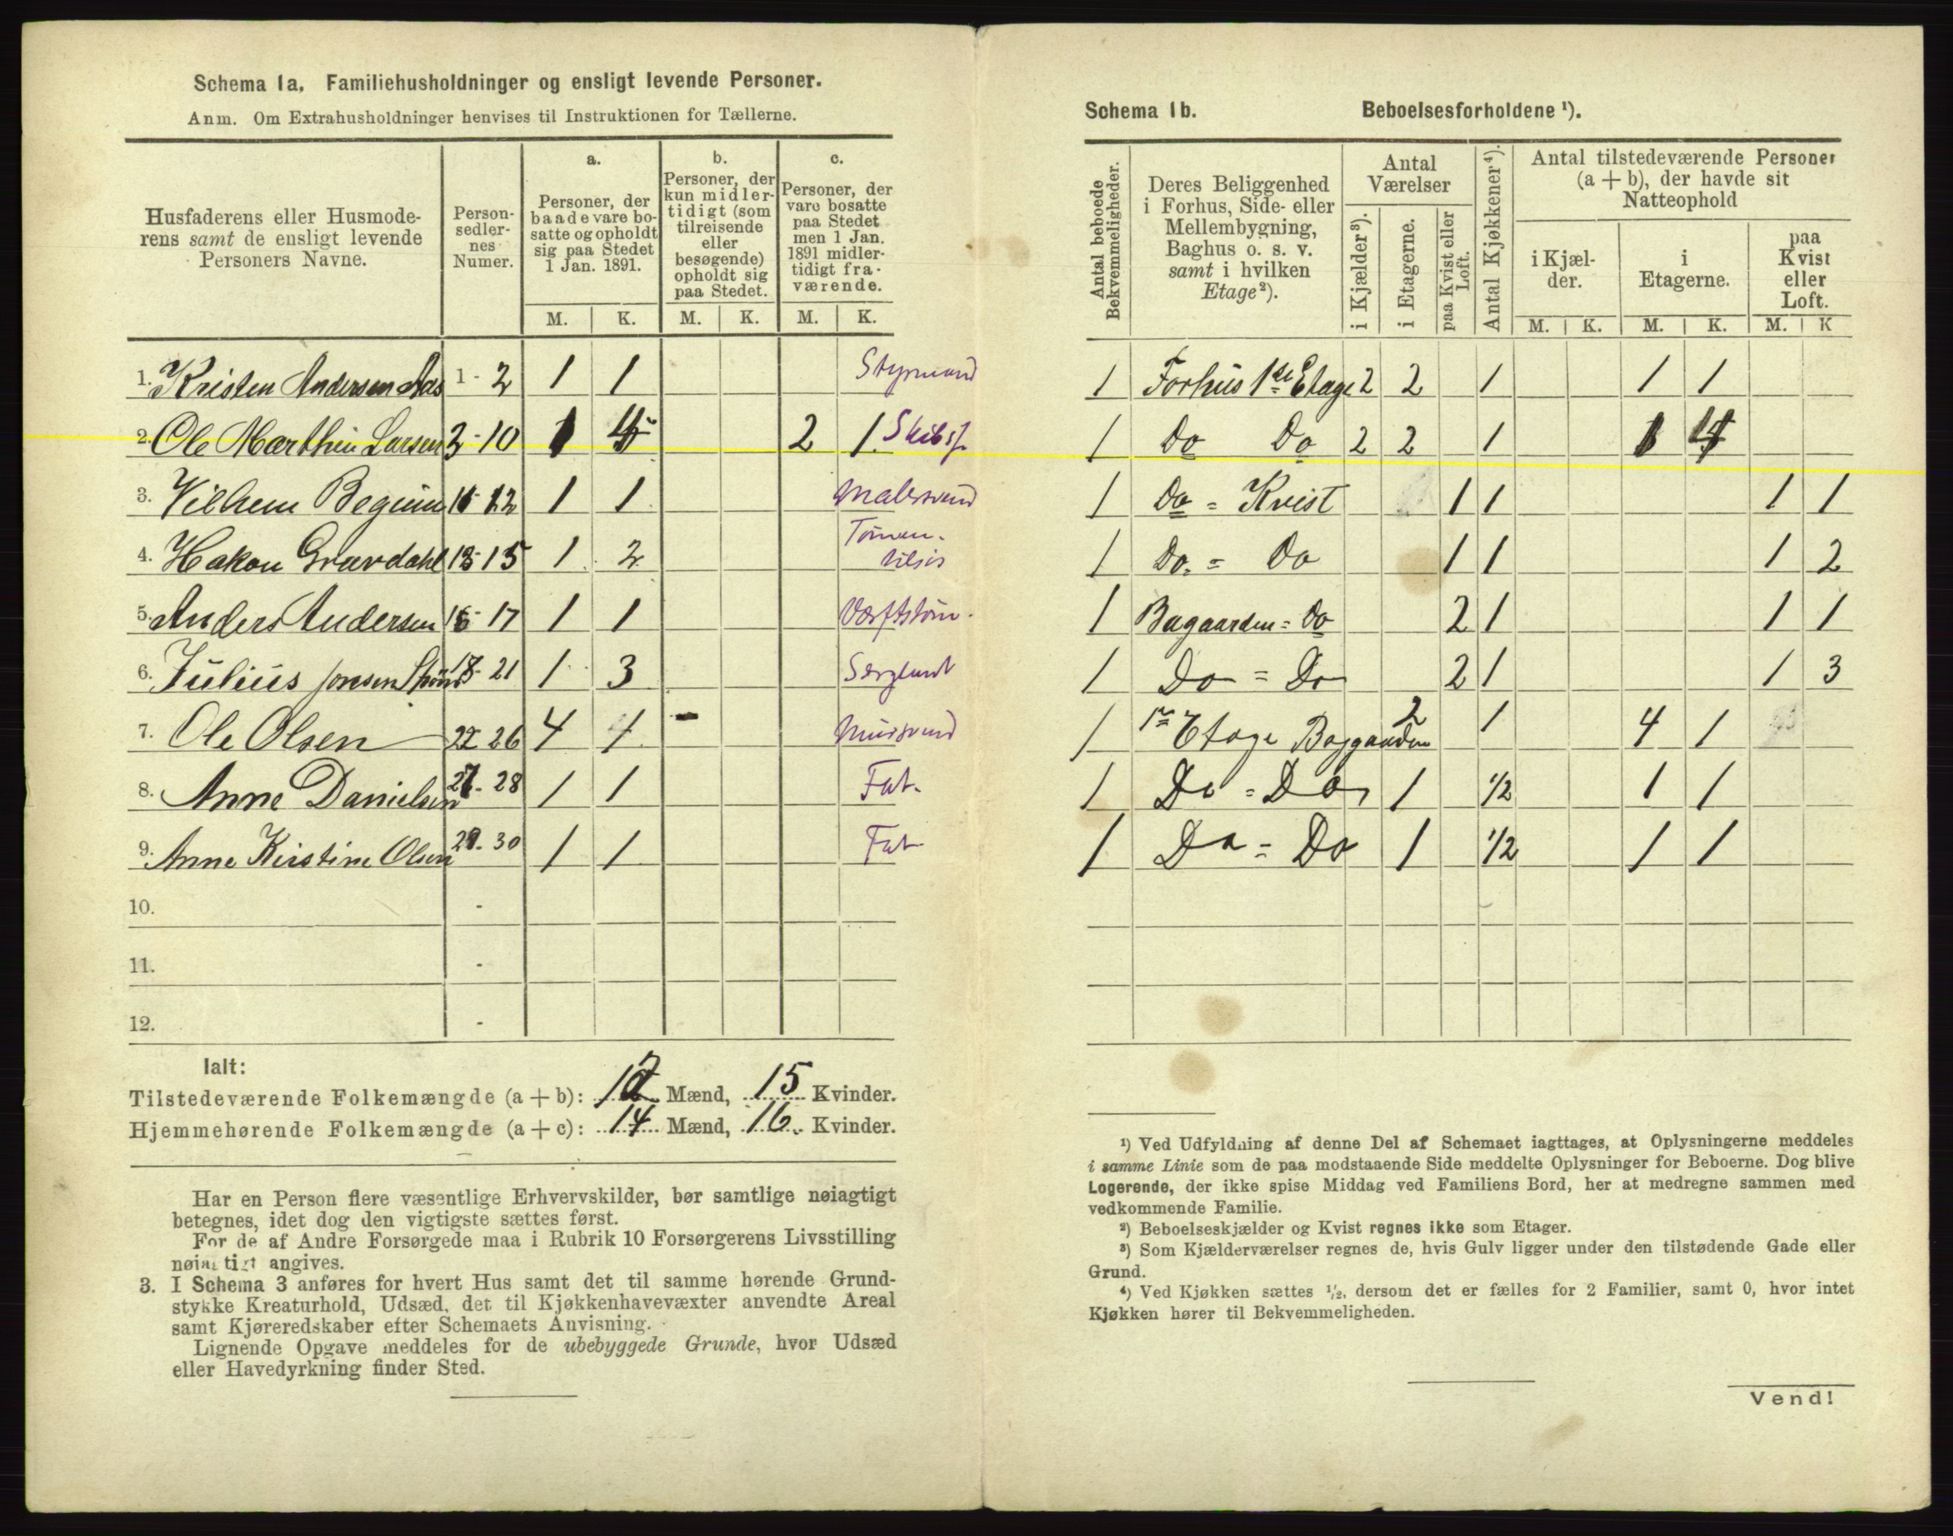 Schema 1a. Familiehusholdninger og ensligt levende Personer.
Anm. Om Extrahusholdninger henvises til Instruktionen for Tællerne.
Husfaderens eller Husmoderens samt de ensligt levende Personers Navne.
Personsedlernes Numer.
a. Personer, der baade vare bosatte og opholdt sig paa Stedet 1 Jan. 1891.
b. Personer, der kun midlertidigt (som tilreisende eller besøgende) opholdt sig paa Stedet.
c. Personer, der vare bosatte paa Stedet men 1 Jan. 1891 midlertidigt fraværende.
M. K. M. K. M. K.
1. Kristen Andersen Aas 1 - 2 1 1 Styrmand
2. Ole Marthin Larsen 3 - 10 1 4 2 1. Skibsf.
3. Vilhem 11 - 12 1 1 Malersvend
4. Hakon 13 - 15 1 2
5. Anders Andersen 16 - 17 1 1 Værftstøm.
6. Julius Jonsen 18 - 21 1 3
7. Ole Olsen 22 - 26 4 1 Mursvend
8. Anne Danielsen 27 - 28 1 1 Fat.
9. Anne Kirstine Olsen 29 - 30 1 1 Fat
10. -
11. -
12. -
Ialt:
Tilstedeværende Folkemængde (a + b): 12 Mænd, 15 Kvinder.
Hjemmehørende Folkemængde (a + c): 14 Mænd, 16. Kvinder.
Har en Person flere væsentlige Erhvervskilder, bør samtlige nøiagtigt
betegnes, idet dog den vigtigste sættes først.
For de af Andre Forsørgede maa i Rubrik 10 Forsørgerens Livsstilling
nøiagtigt angives.
3. I Schema 3 anføres for hvert Hus samt det til samme hørende Grund-
stykke Kreaturhold, Udsæd, det til Kjøkkenhavevæxter anvendte Areal
samt Kjøreredskaber efter Schemaets Anvisning.
Lignende Opgave meddeles for de ubebyggede Grunde, hvor Udsæd
eller Havedyrkning finder Sted.
Schema 1b. Beboelsesforholdene ¹).
Antal beboede Bekvemmeligheder.
Deres Beliggenhed i Forhus, Side- eller Mellembygning, Baghus o. s. v. samt i hvilken Etage²).
Antal Værelser
i Kjælder³).
i Etagerne.
paa Kvist eller Loft.
Antal Kjøkkener⁴).
Antal tilstedeværende Personer (a + b), der havde sit Natteophold
i Kjælder.
i Etagerne.
paa Kvist eller Loft.
M. K. M. K. M. K
1 Forhus 1ste Etage 2 2 1 1 1
1 Do Do 2 2 1 1 4
1 Do = Kvist 1 1 1 1
1 Do. = Do 1 1 1 2
1 Bagaarden = Do 2 1 1 1
1 Do = Do 2 1 1 3
1 1ste Etage Baggaarden 2 1 4 1
1 Do = Do 1 1/2 1 1
1 Do = Do 1 1/2 1 1
¹) Ved Udfyldning af denne Del af Schemaet iagttages, at Oplysningerne meddeles
i samme Linie som de paa modstaaende Side meddelte Oplysninger for Beboerne. Dog blive
Logerende, der ikke spise Middag ved Familiens Bord, her at medregne sammen med
vedkommende Familie.
²) Beboelseskjælder og Kvist regnes ikke som Etager.
³) Som Kjælderværelser regnes de, hvis Gulv ligger under den tilstødende Gade eller
Grund.
⁴) Ved Kjøkken sættes ½, dersom det er fælles for 2 Familier, samt 0, hvor intet
Kjøkken hører til Bekvemmeligheden.
Vend!